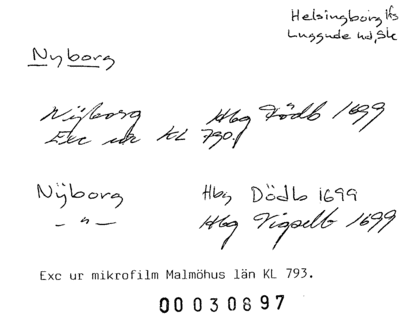 Helsingborg lfs
Luggude hd, Sk
Nyborg
Nÿborg Hbg Dödb 1699
Exc ur KL 790.
Nÿborg Hbg Dödb 1699
— " — Hbg Vigselb 1699
Exc ur mikrofilm Malmöhus län KL 793.
00030897